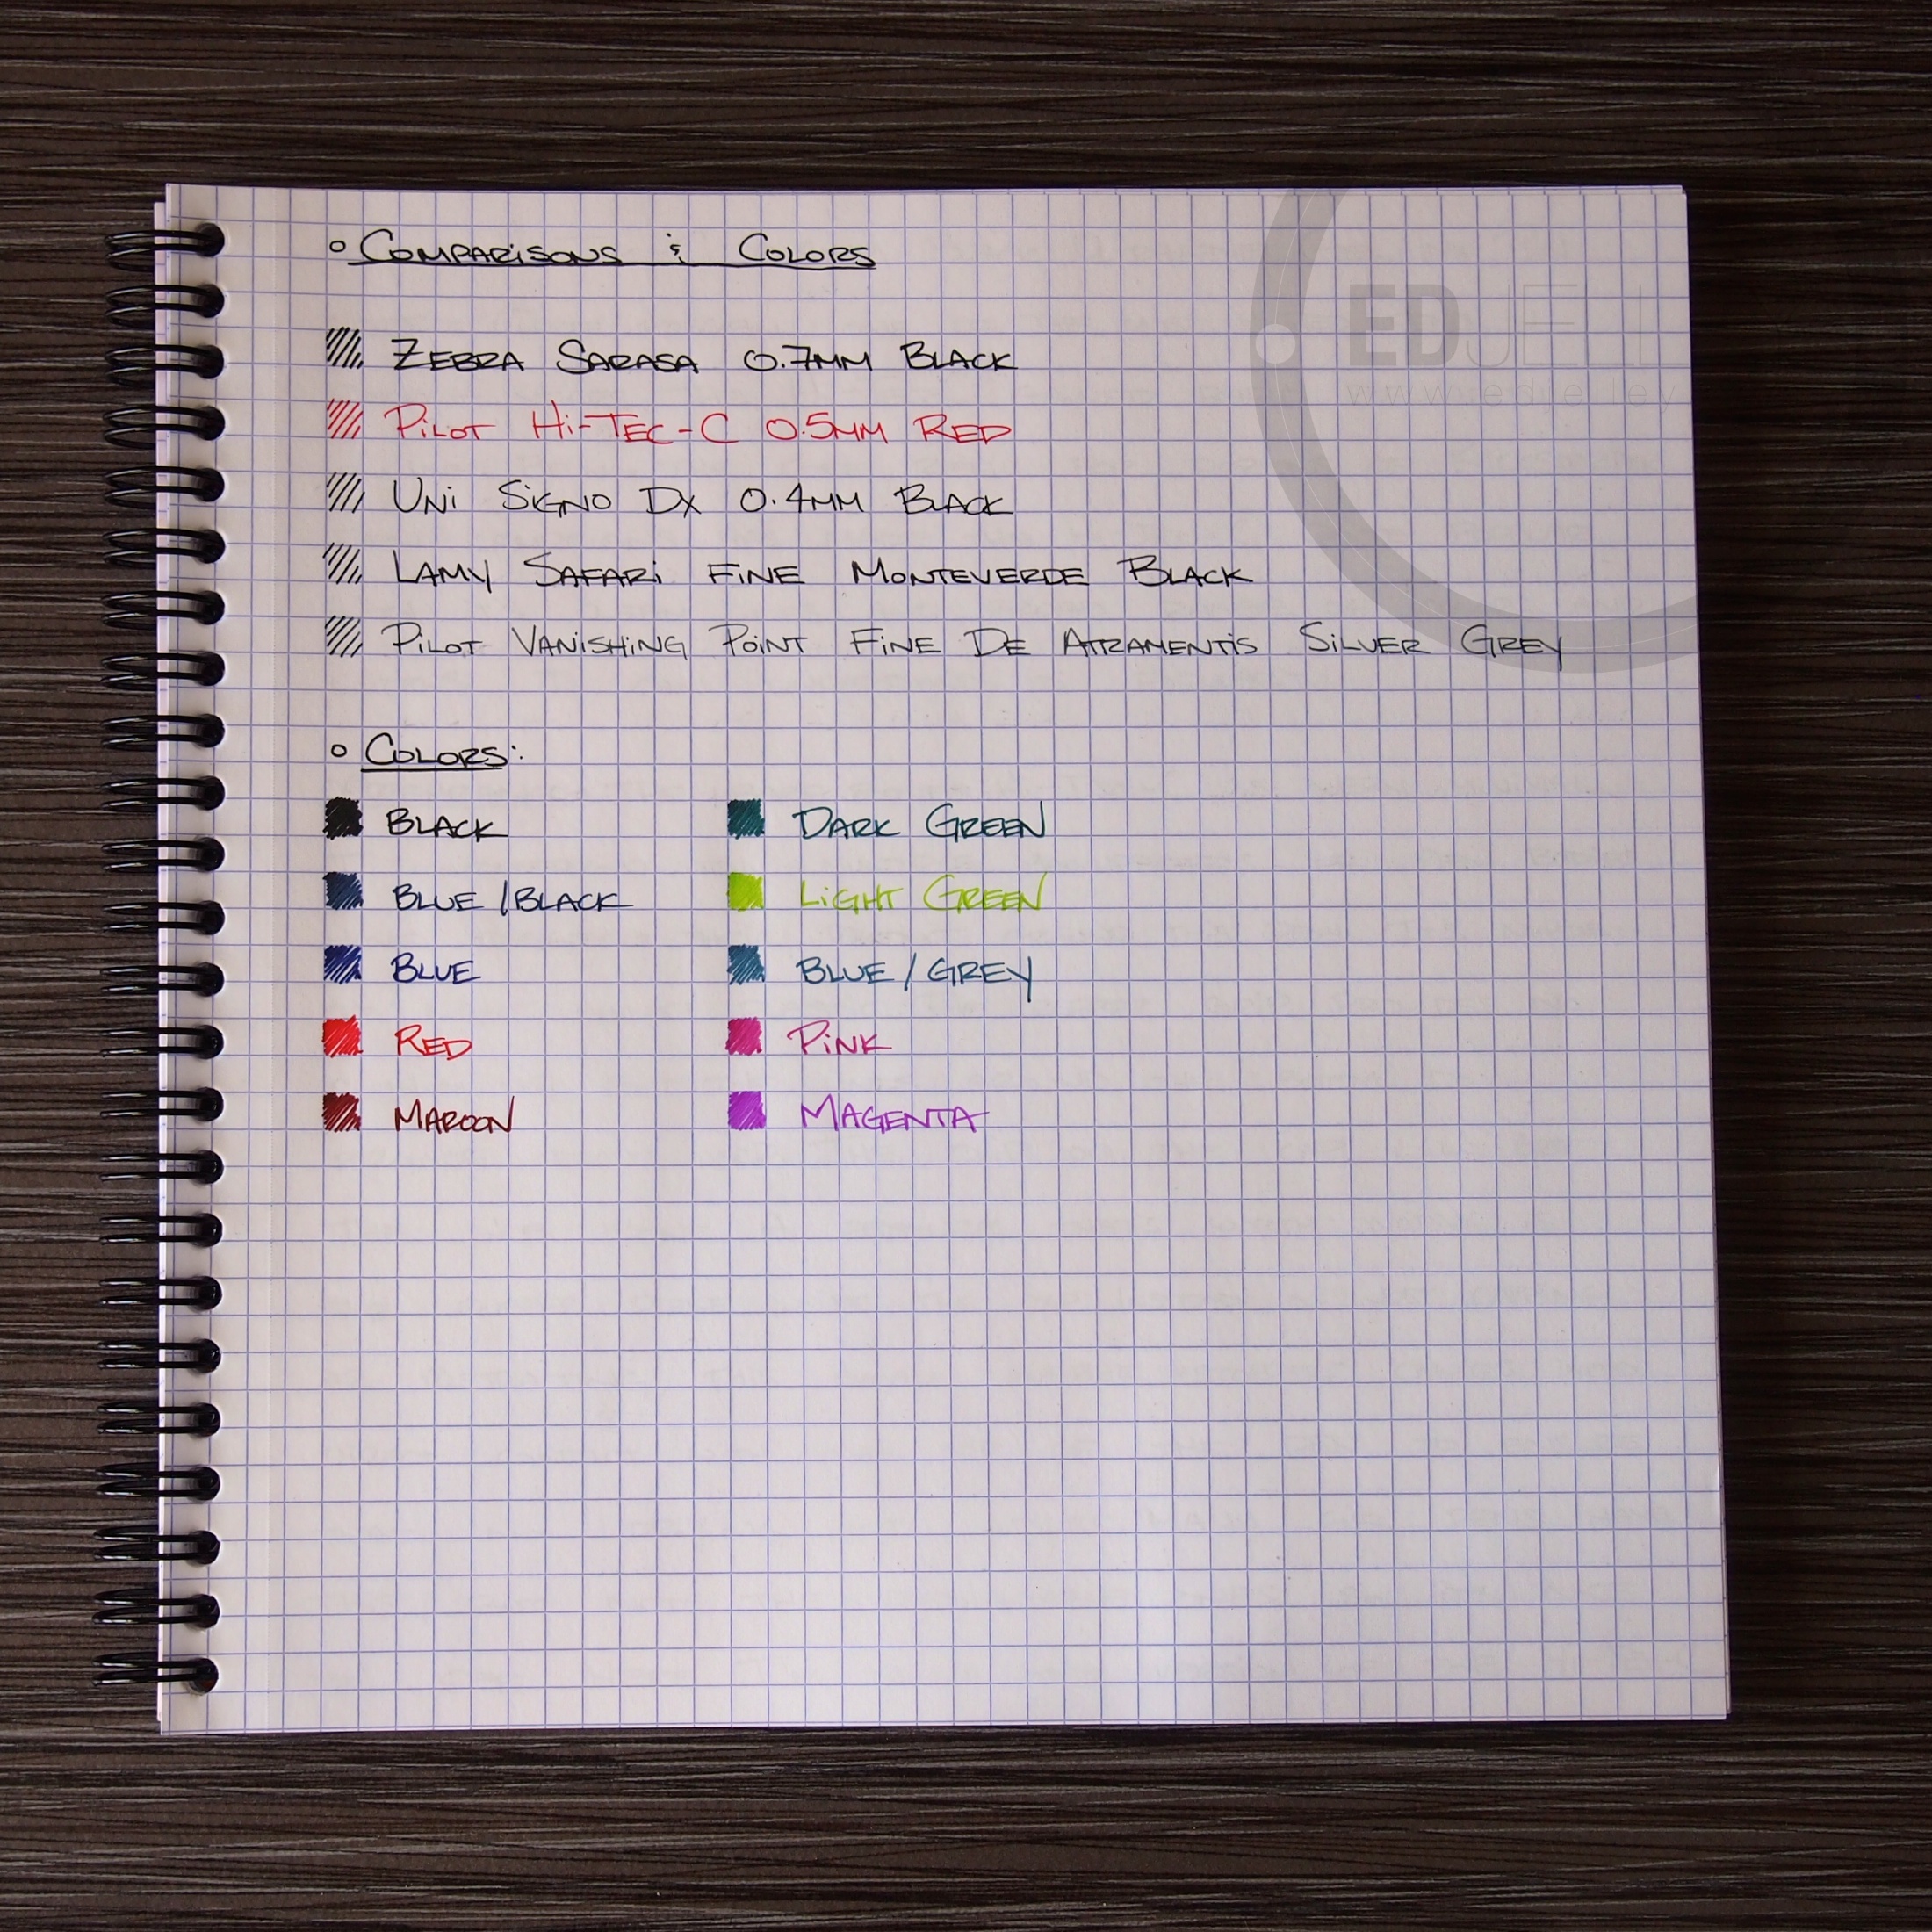 ° COMPARISONS & COLORS
ZEBRA SARASA 0.7MM BLACK
PILOT Hi-TEC-C 0.5MM RED
UNi SiGNO DX 0.4MM BLACK
LAMY SAFARi FiNE MONTEVERDE BLACK
PiLOT VANiSHiNG POiNT FiNE DE ATRAMENTiS SiLVER GREY
° COLORS:
BLACK
BLUE/BLACK
BLUE
RED
MAROON
DARK GREEN
LiGHT GREEN
BLUE/GREY
PiNK
MAGENTA
EDJELL
www.edjelley